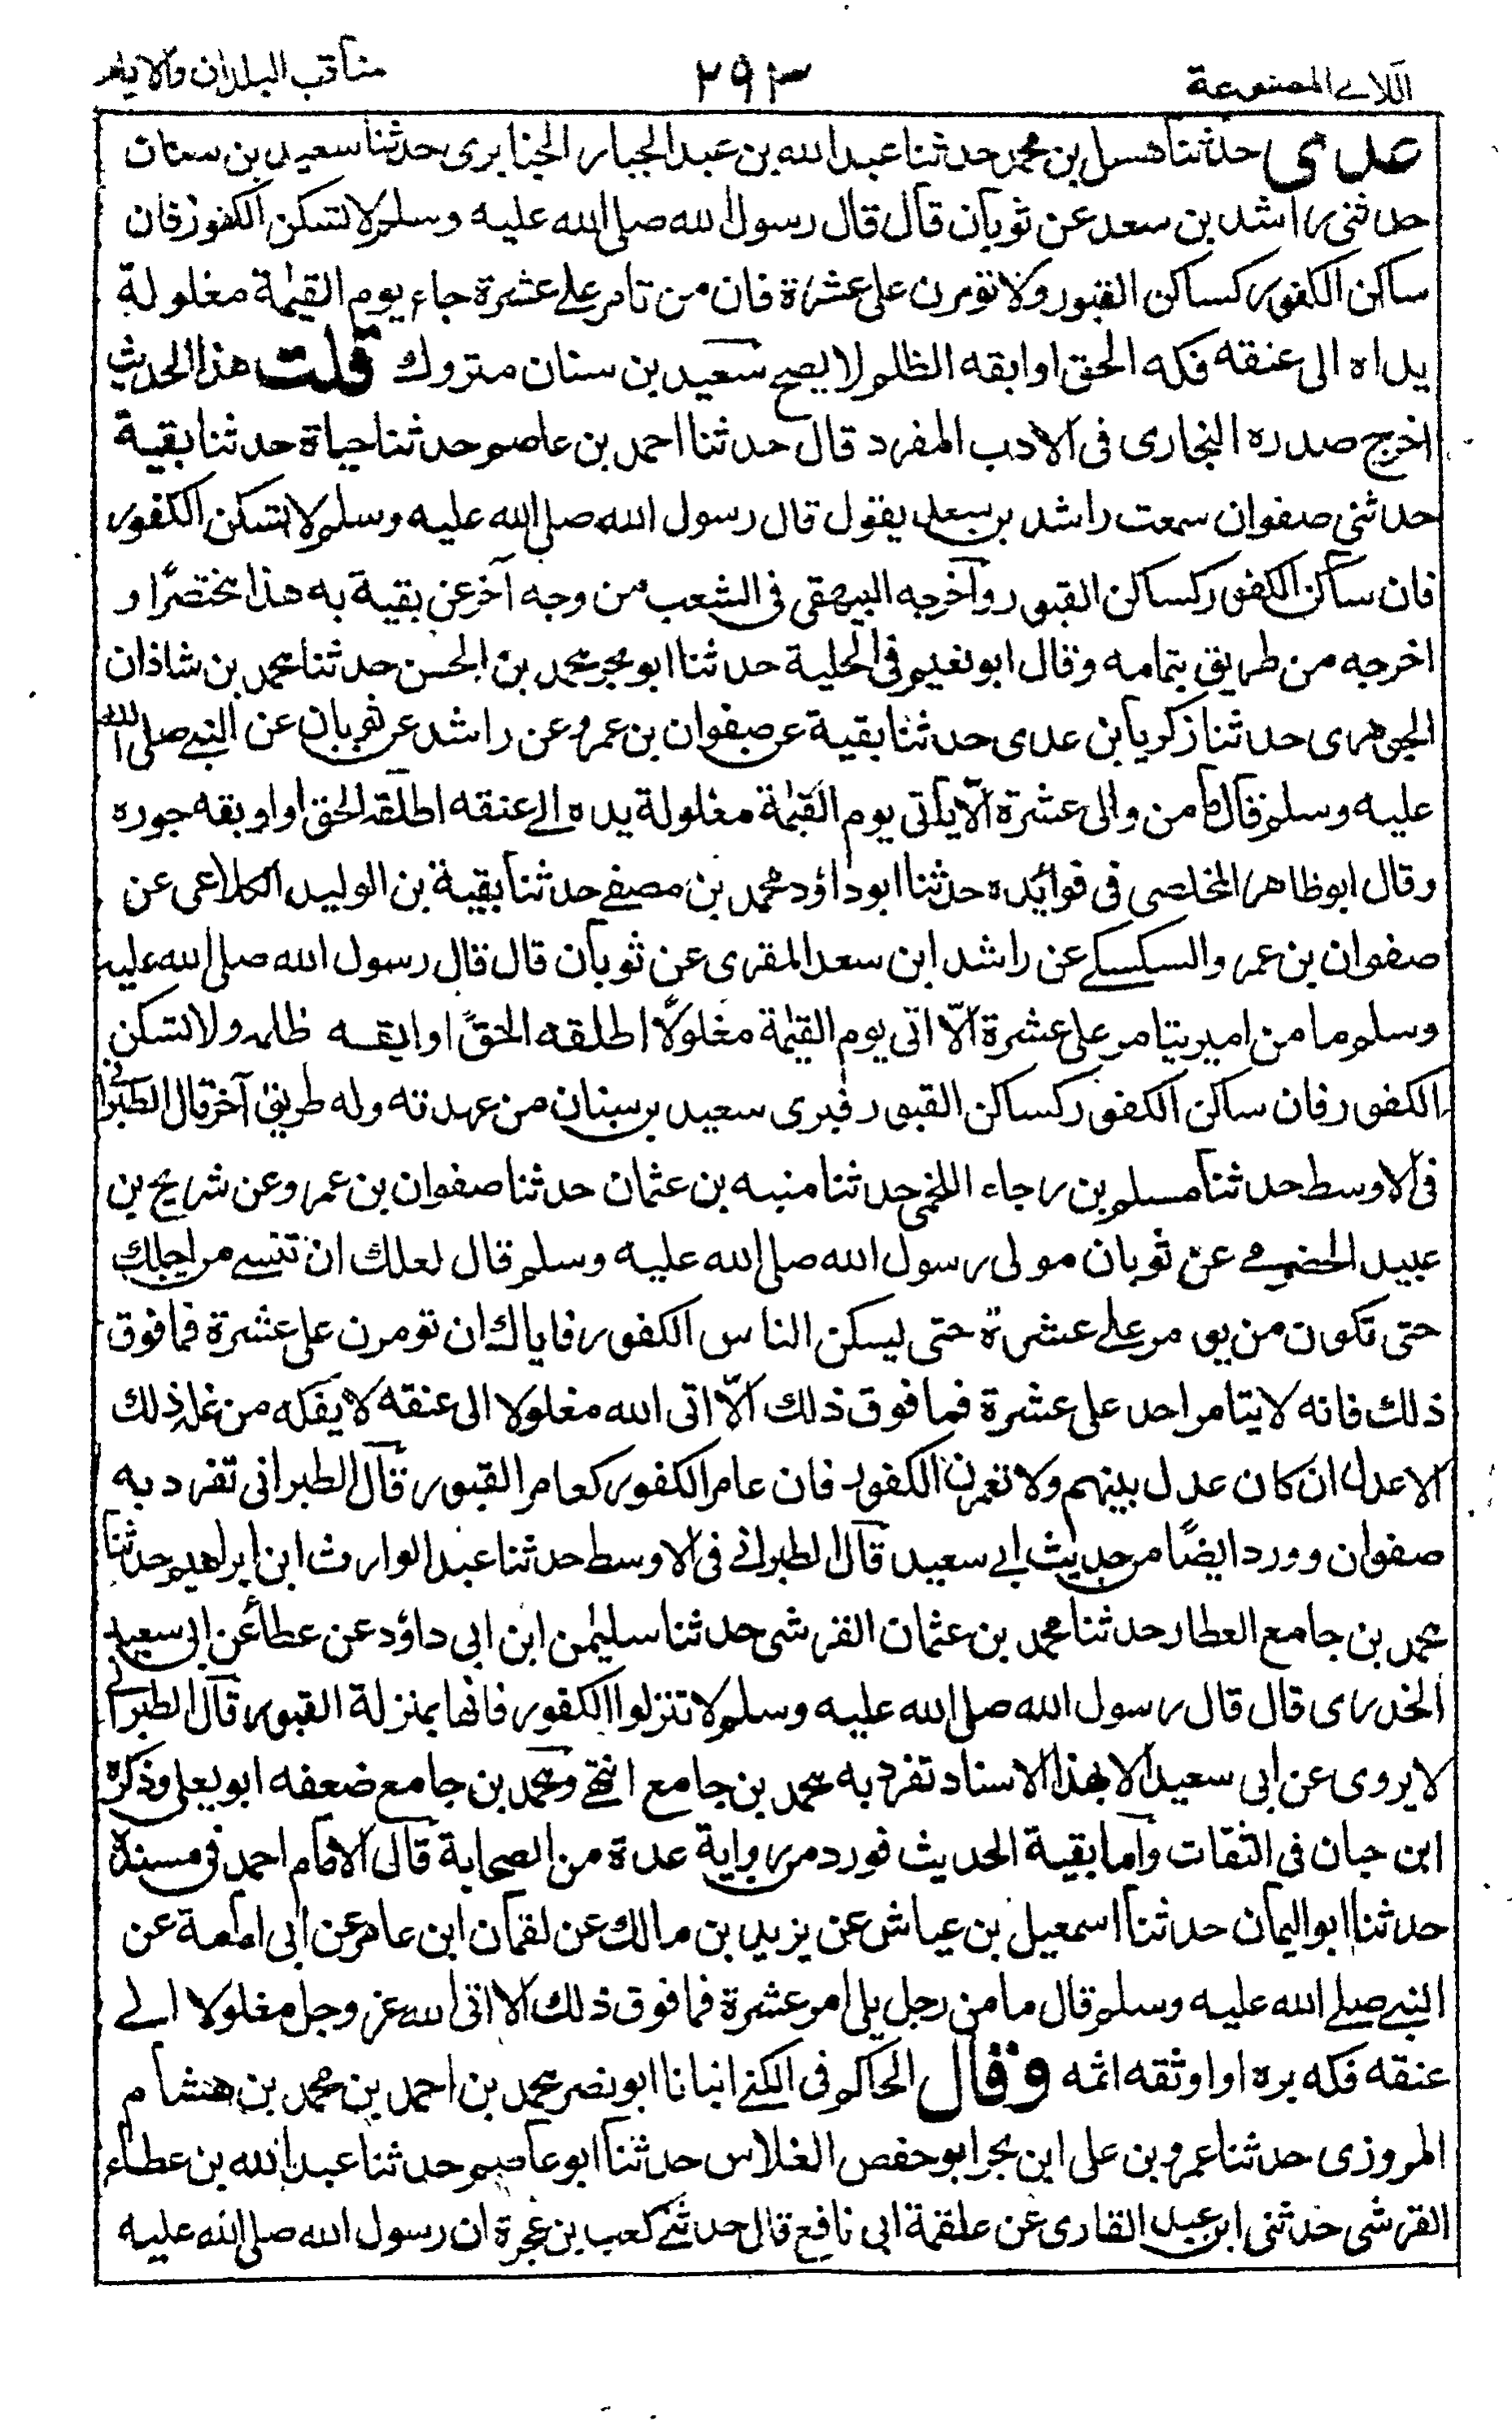 اللآلئ المصنوعة
٢٩٣
مناقب البلدان والايام
عدى حدثنا هسل بن محمد حدثنا عبد الله بن عبد الجبار الجنابرى حدثنا سعيد بن سنان
حدثنى راشد بن سعد عن ثوبان قال قال رسول الله صلى الله عليه وسلم لا تسكن الكفور فان
ساكن الكفور كساكن القبور ولا تومرن على عشرة فان من تامر على عشرة جاء يوم القيمة مغلولة
يداه الى عنقه فكه الحق او ابقه الظلم لا يصح سعيد بن سنان متروك قلت هذا الحديث
اخرج صدره البخارى فى الادب المفرد قال حدثنا احمد بن عاصم حدثنا حياة حدثنا بقية
حدثنى صفوان سمعت راشد بن سعد يقول قال رسول الله صلى الله عليه وسلم لا تسكن الكفور
فان ساكن الكفور كساكن القبور واخرجه البيهقى فى الشعب من وجه آخر عن بقية به هذا مختصرًا و
اخرجه من طريق بتمامه وقال ابو نعيم فى الحلية حدثنا ابو بحر محمد بن الحسن حدثنا محمد بن شاذان
الجوهرى حدثنا زكريا بن عدى حدثنا بقية عن صفوان بن عمرو عن راشد عن ثوبان عن النبى صلى الله
عليه وسلم قال ما من والى عشرة الّا ياتى يوم القيمة مغلولة يده الى عنقه اطلقه الحق او اوبقه جوره
وقال ابو ظاهر المخلصى فى فوائده حدثنا ابو داؤد محمد بن مصفى حدثنا بقية بن الوليد الكلاعى عن
صفوان بن عمرو السكسكى عن راشد ابن سعد المقرى عن ثوبان قال قال رسول الله صلى الله عليه
وسلم ما من امير يتامر على عشرة الّا اتى يوم القيمة مغلولًا اطلقه الحق او ابقه ظلمه ولا تسكن
الكفور فان ساكن الكفور كساكن القبور فبرى سعيد بن سنان من عهدته وله طريق آخر قال الطبرانى
فى الاوسط حدثنا مسلم بن رجاء اللخمى حدثنا منبه بن عثمان حدثنا صفوان بن عمرو عن شريح بن
عبيد الحضرمى عن ثوبان مولى رسول الله صلى الله عليه وسلم قال لعلك ان تنسى من اجلك
حتى تكون من يومر على عشرة حتى ليسكن الناس الكفور فاياك ان تومرن على عشرة فما فوق
ذلك فانه لا يتامر احد على عشرة فما فوق ذلك الّا اتى الله مغلولا الى عنقه لا يفكه من غله ذلك
الا عدل ان كان عدل بينهم ولا تعمرن الكفور فان عامر الكفور كعامر القبور قال الطبرانى تفرد به
صفوان وورد ايضًا من حديث ابى سعيد قال الطبرانى فى الاوسط حدثنا عبد الوارث ابن ابراهيم حدثنا
محمد بن جامع العطار حدثنا محمد بن عثمان القرشى حدثنا سليمٰن ابن ابى داؤد عن عطاء عن ابى سعيد
الخدرى قال قال رسول الله صلى الله عليه وسلم لا تنزلوا الكفور فانها بمنزلة القبور قال الطبرانى
لا يروى عن ابى سعيد الا بهذا الاسناد تفرد به محمد بن جامع انتهى ومحمد بن جامع ضعفه ابو يعلى وذكره
ابن حبان فى الثقات واما بقية الحديث فورد من رواية عدة من الصحابة قال الامام احمد فى مسنده
حدثنا ابو اليمان حدثنا اسمعيل بن عياش عن يزيد بن مالك عن لقمان ابن عامر عن ابى امامة عن
النبى صلى الله عليه وسلم قال ما من رجل يلى امر عشرة فما فوق ذلك الا اتى الله عز وجل مغلولا الى
عنقه فكه بره او اوثقه اثمه وقال الحاكم فى الكنى انبانا ابو نصر محمد بن احمد بن محمد بن هشام
المروزى حدثنا عمرو بن على ابن بحر ابو حفص الغلاس حدثنا ابو عاصم حدثنا عبد الله بن عطاء
القرشى حدثنى ابن عبد القارى عن علقمة ابى نافع قال حدثنى كعب بن عجرة ان رسول الله صلى الله عليه